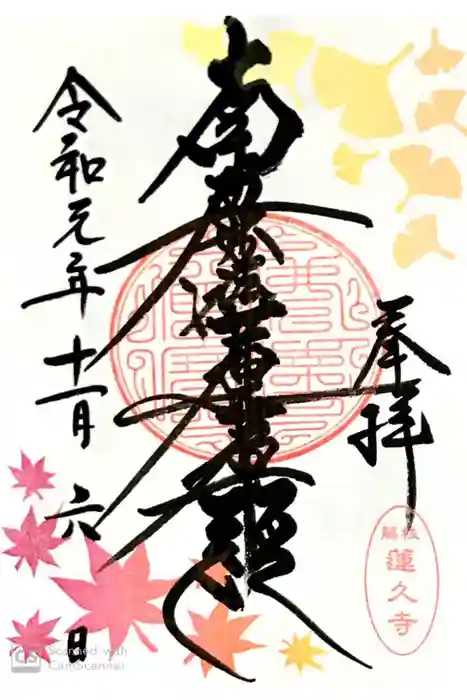 奉拝
南無妙法蓮華経
令和元年十一月六日
蓮久寺
Scanned with
CamScanner